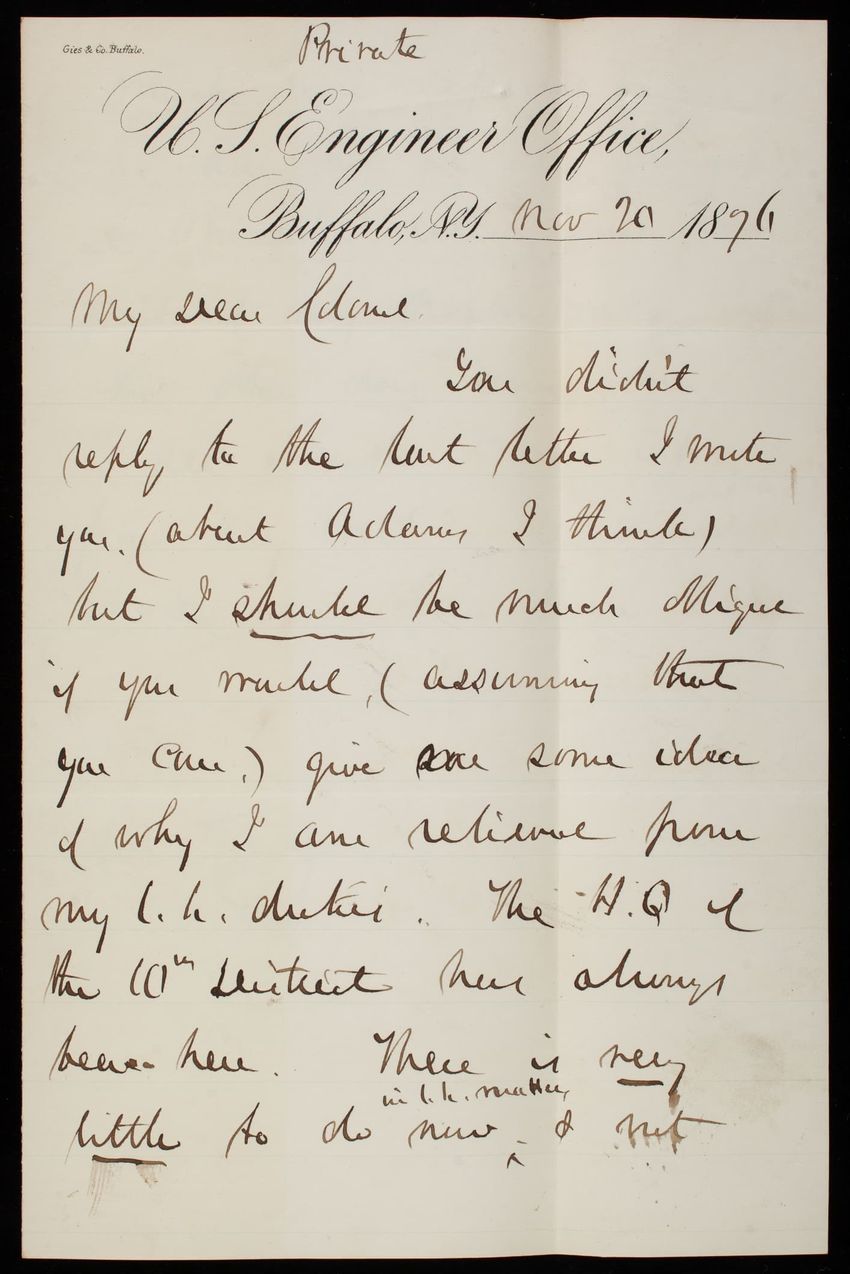 Gies & Co. Buffalo.
Private
U.S. Engineer Office,
Buffalo, N.Y. Nov 20 1896
My Dear Colonel
You didn't
reply to the last letter I wrote
you, (about Adams I think)
but I should be much oblige
if you would, (assuming that
you can,) give me some idea
of why I am relieved from
my l.h. duties. The H.Q of
the 10th District has always
been here. There is very
in l.h. matters
little to do now, & not